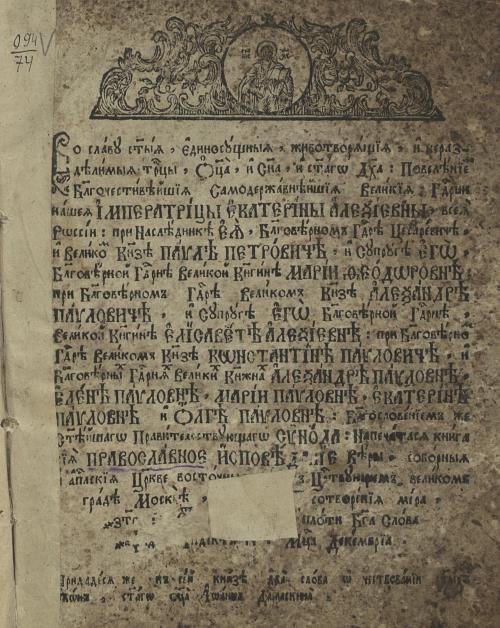 094
74
Во славу ст҃ыѧ, єдиносꙋщныѧ, животворѧщїѧ, и нераз-
дѣлимыѧ трⷪ҇цы, Ѻц҃а, и Сн҃а, и ст҃агѡ Дх҃а: Повелѣнїемъ
Благочестивѣйшїѧ Самодержавнѣйшїѧ Великїѧ Гдⷭ҇рни
нашеѧ ІМПЕРАТРИЦЫ ЄКАТЕРИНЫ АЛЕѮІЕВНЫ, всеѧ
Рѡссїи: при Наслѣдникѣ ЄѦ, Благовѣрномъ Гдⷭ҇рѣ Цесаревичѣ,
и Великомъ Кнѧзѣ ПАѴЛѢ ПЕТРОВИЧѢ, и Сꙋпрꙋгѣ ЄГѠ,
Благовѣрной Гдⷭ҇рнѣ Великой Кнѧгинѣ МАРІИ ѲЕОДѠРОВНѢ:
при Благовѣрномъ Гдⷭ҇рѣ Великомъ Кнѧзѣ АЛЕѮАНДРѢ
ПАѴЛОВИЧѢ, и Сꙋпрꙋгѣ ЄГѠ, Благовѣрной Гдⷭ҇рнѣ,
Великой Кнѧгинѣ ЄЛІСАВЕТѢ АЛЕѮІЕВНѢ: при Благовѣрномъ
Гдⷭ҇рѣ Великомъ Кнѧзѣ КѠНСТАНТІНѢ ПАѴЛОВИЧѢ, и
Благовѣрныхъ Гдⷭ҇рнѧхъ Великихъ Кнѧжнахъ АЛЕѮАНДРѢ ПАѴЛОВНѢ,
ЄЛЕНѢ ПАѴЛОВНѢ, МАРІИ ПАѴЛОВНѢ, ЄКАТЕРИНѢ
ПАѴЛОВНѢ и ѺЛГѢ ПАѴЛОВНѢ: Благословенїемъ же
Ст҃ѣйшагѡ Правителствꙋющагѡ СѴНОДА: Напечатасѧ книга
сїѧ ПРАВОСЛАВНОЕ ИСПОВѢ Вѣры, соборныѧ
и апⷭ҇лскїѧ Цр҃кве Црⷭ҇твꙋющемъ великомъ
градѣ Москвѣ, сотворенїѧ мїра,
плоти Бг҃а Слова
Мцⷭ҇а Декемврїа.
Придадѣсѧ же къ сей кнѧзѣ два слова ѡ чествованїи ст҃ыхъ
їкѡнъ, ст҃агѡ Ѻц҃а Іѡанна Дамаскина.